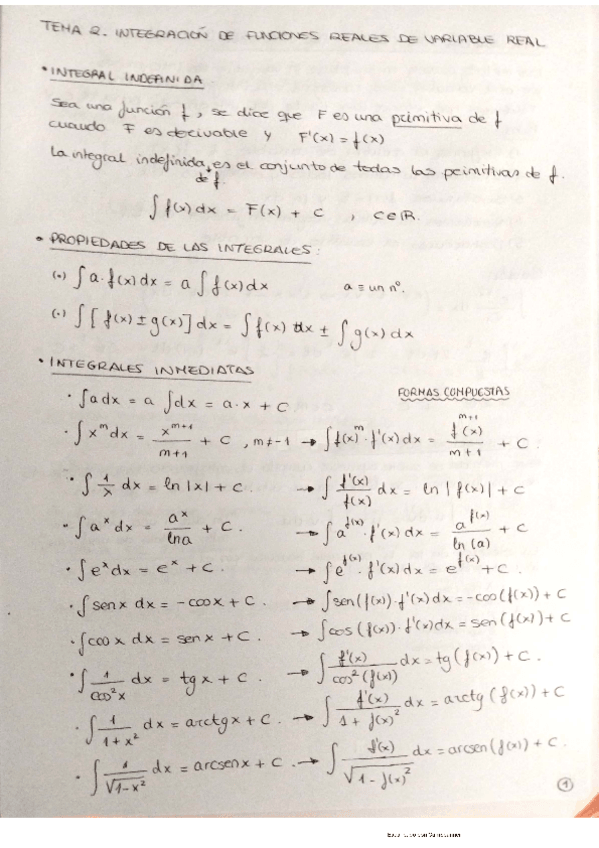 TEMA 2. INTEGRACIÓN DE FUNCIONES REALES DE VARIABLE REAL
• INTEGRAL INDEFINIDA.
Sea una función f, se dice que F es una primitiva de f
cuando F es derivable y F'(x) = f(x)
La integral indefinida de f. es el conjunto de todas las primitivas de f.
∫ f(x) dx = F(x) + C , C∈ℝ.
• PROPIEDADES DE LAS INTEGRALES:
(•) ∫ a·f(x) dx = a ∫ f(x) dx a ≡ un nº.
(•) ∫ [f(x) ± g(x)] dx = ∫ f(x) dx ± ∫ g(x) dx
• INTEGRALES INMEDIATAS
FORMAS COMPUESTAS
· ∫ a dx = a ∫ dx = a·x + C
· ∫ x^m dx = x^(m+1)/(m+1) + C , m≠-1 → ∫ f(x)^m · f'(x) dx = f(x)^(m+1)/(m+1) + C.
· ∫ 1/x dx = ln |x| + C. → ∫ f'(x)/f(x) dx = ln |f(x)| + C
· ∫ a^x dx = a^x/ln a + C. → ∫ a^f(x) · f'(x) dx = a^f(x)/ln (a) + C
· ∫ e^x dx = e^x + C. → ∫ e^f(x) · f'(x) dx = e^f(x) + C.
· ∫ sen x dx = -cos x + C. → ∫ sen (f(x)) · f'(x) dx = -cos (f(x)) + C
· ∫ cos x dx = sen x + C. → ∫ cos (f(x)) · f'(x) dx = sen (f(x)) + C
· ∫ 1/cos²x dx = tg x + C. → ∫ f'(x)/cos²(f(x)) dx = tg (f(x)) + C.
· ∫ 1/(1+x²) dx = arctg x + C. → ∫ f'(x)/(1+f(x)²) dx = arctg (f(x)) + C
· ∫ 1/√(1-x²) dx = arcsen x + C. → ∫ f'(x)/√(1-f(x)²) dx = arcsen (f(x)) + C.
1